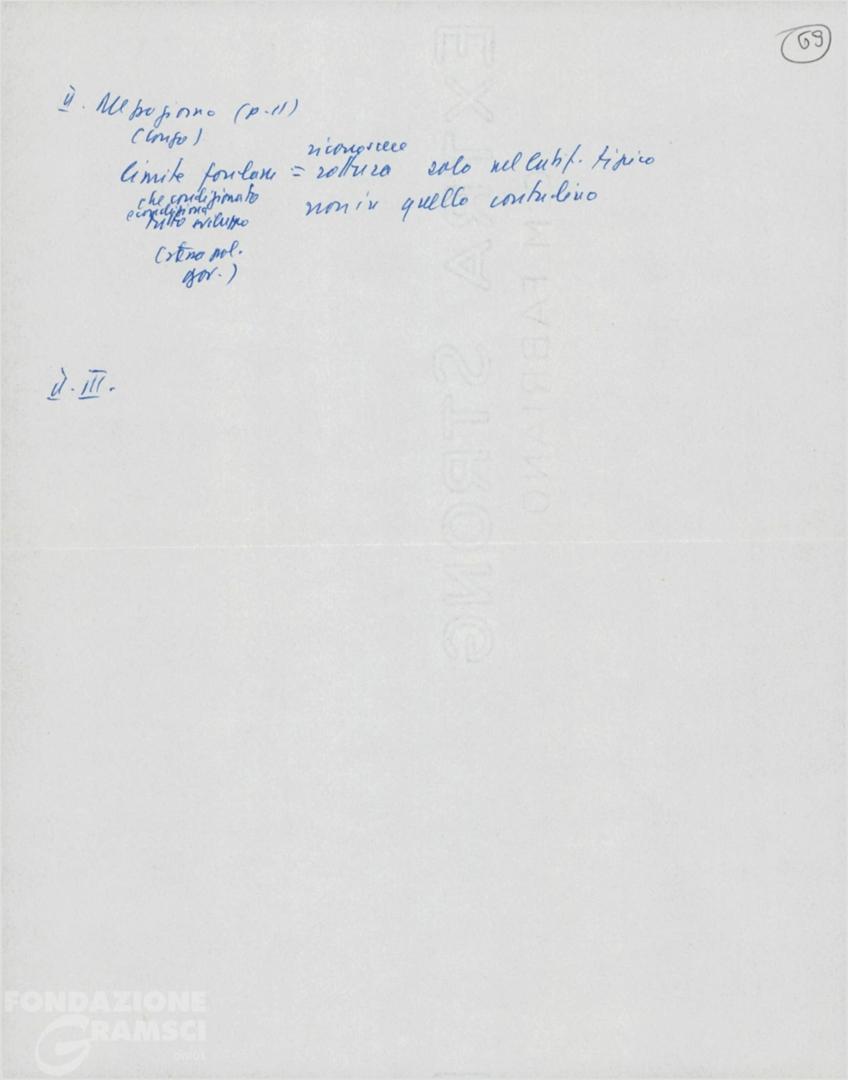 69
II. Mezzogiorno (p. 11)
(Longo).
riconoscere
limite fondam = rottura solo nel latif. tipico
che condizionato
e condiziona
tutto sviluppo
non in quello contadino
(stessa pol.
gov.)
II. III.
EXTRA STRONG
M FABRIANO
FONDAZIONE
GRAMSCI
ONLUS